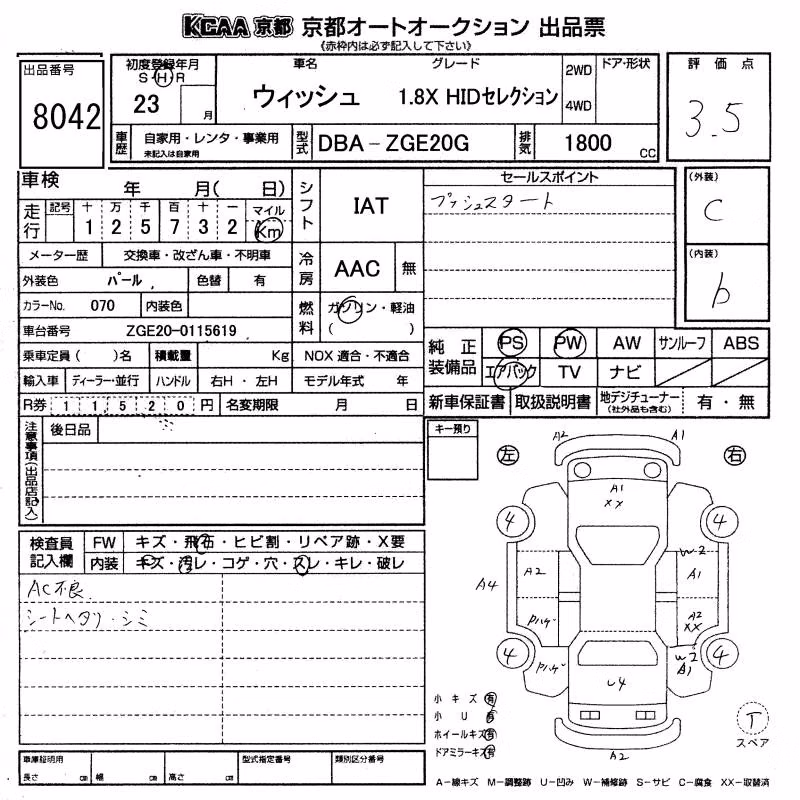 KCAA 京都 京都オートオークション 出品票
《赤枠内は必ず記入して下さい》
出品番号
8042
初度登録年月
S・H・R
23
月
車名
ウィッシュ
グレード
1.8X HIDセレクション
2WD
4WD
ドア・形状
評価点
3.5
車歴
自家用・レンタ・事業用
未記入は自家用
型式
DBA-ZGE20G
排気
1800
cc
車検
年 月( 日)
走行
記号
十 万 千 百 十 一
1 2 5 7 3 2
マイル
Km
シフト
IAT
セールスポイント
プッシュスタート
(外装)
C
(内装)
b
メーター歴
交換車・改ざん車・不明車
冷房
AAC
無
外装色
パール
色替
有
カラーNo.
070
内装色
燃料
ガソリン・軽油
( )
車台番号
ZGE20-0115619
乗車定員( )名
積載量
Kg
NOX 適合・不適合
輸入車
ディーラー・並行
ハンドル
右H・左H
モデル年式 年
R券
1 1 5 2 0 円
名変期限
月 日
純正装備品
PS
PW
AW
サンルーフ
ABS
エアバック
TV
ナビ
新車保証書
取扱説明書
地デジチューナー
(社外品も含む)
有・無
注意事項(出品店記入)
後日品
キー預り
左
右
検査員記入欄
FW
キズ・飛石・ヒビ割・リペア跡・X要
内装
キズ・汚レ・コゲ・穴・スレ・キレ・破レ
AC不良
シートヘタリ・シミ
A2
A1
A1
XX
4
4
A2
W2
A1
A4
Pハゲ
A2
XX
4
Pハゲ
U4
W2
A1
4
A2
小キズ 有
小U 有
ホイールキズ 有
ドアミラーキズ 有
T
スペア
車庫証明用
長さ cm
幅 cm
高さ cm
型式指定番号
類別区分番号
A-線キズ M-調整跡 U-凹み W-補修跡 S-サビ C-腐食 XX-取替済